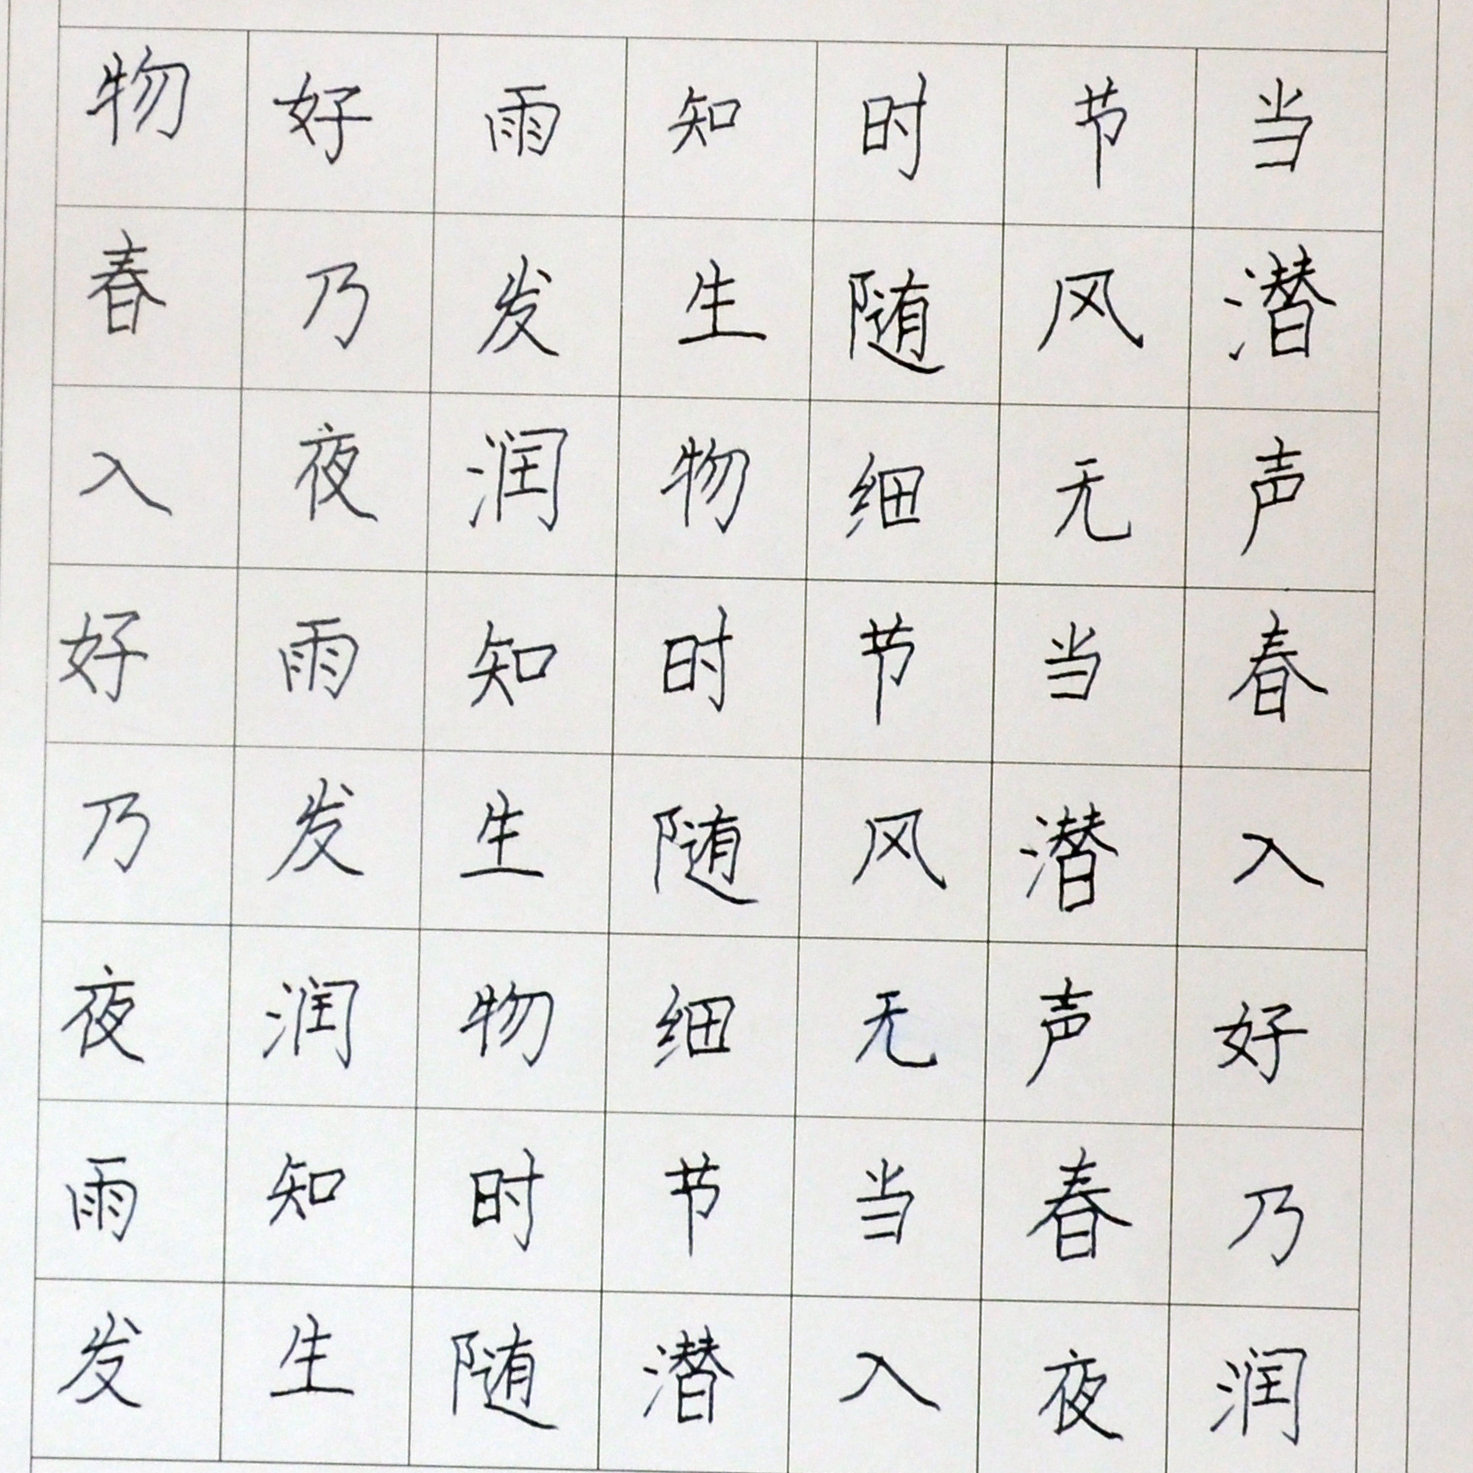 物好雨知时节当
春乃发生随风潜
入夜润物细无声
好雨知时节当春
乃发生随风潜入
夜润物细无声好
雨知时节当春乃
发生随潜入夜润